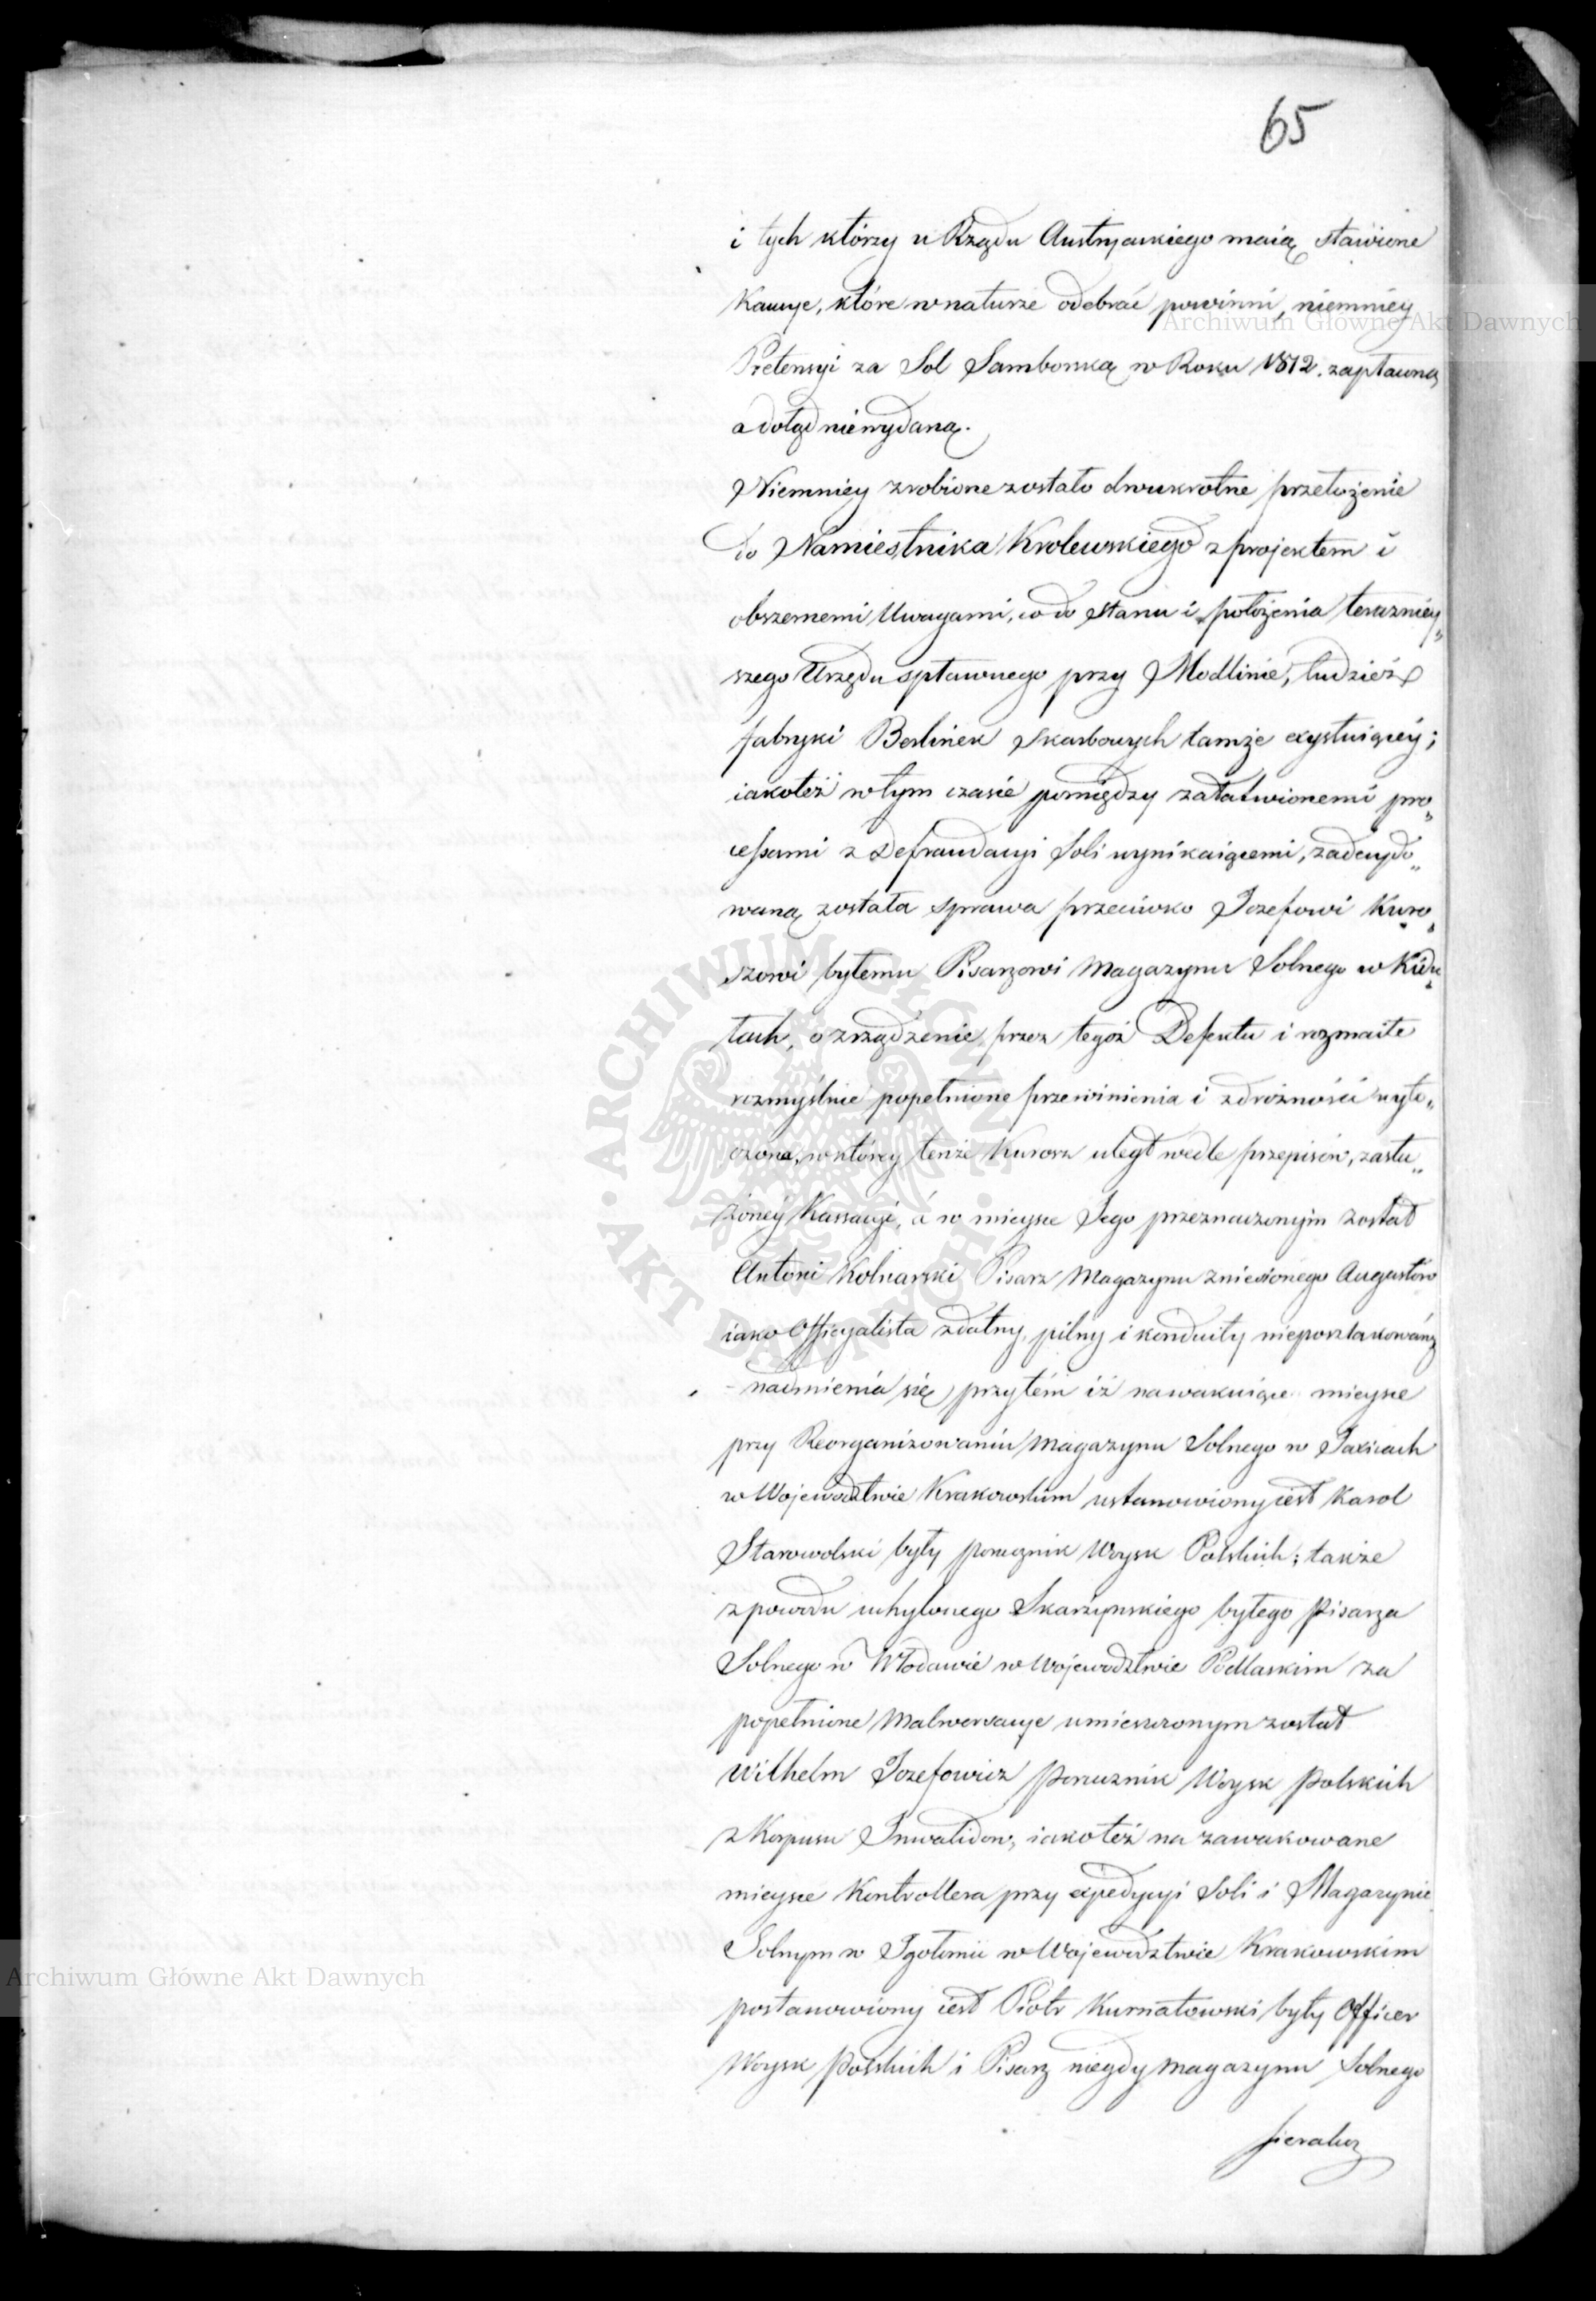 65
i tych którzy u Rządu Austryackiego maią stawione
Kaucye, które w naturze odebrać powinni, niemniey
Pretensyi za Sol Samborską w Roku 1812. zapłaconą
a dotąd niewydaną.
Niemniey zrobione zostało dwukrotne przełożenie
do Namiestnika Krolewskiego z projektem i
obszernemi Uwagami, co do Stanu i położenia teraźniey„
szego Urzędu spławnego przy Modlinie, tudzież
fabryki Berlinek Skarbowych tamże exystuiącéy;
iakoteż w tym czasie pomiędzy załatwionemi pro„
cessami z Defraudacyi Soli wynikaiącemi, zadecydo„
waną została sprawa przeciwko Jozefowi Kuro„
szowi byłemu Pisarzowi Magazynu Solnego w Kidu„
łach, o zrządzenie przez tegoż Defektu i rozmaite
rozmyślnie popełnione przewinienia i zdrożności wyto„
czona, w któréy tenże Kurosz uległ wedle przepisów, zasłu„
żonéy Kassacyi, á w mieysce Jego przeznaczonym został
Antoni Kolnarski Pisarz Magazynu zniesionego Augustów
iako Officyalista zdatny, pilny i konduity nieposzlakowáney
- nadmienia się przytém iż na wakuiące mieysce
przy Reorganizowaniu Magazynu Solnego w Jaxicach
w Wojewodztwie Krakowskim ustanowiony iest Karol
Starowolski były porucznik Woysk Polskich; także
z powodu uchylonego Skarżynskiego byłego Pisarza
Solnego w Włodawie w Wojewodztwie Podlaskim za
popełnione Malwersacye umieszczonym został
Wilhelm Jozefowicz Porucznik Woysk Polskich
z Korpusu Inwalidow, iakoteż na zawakowane
mieysce Kontrollera przy expedycyi Soli i Magazynie
Solnym w Igołomii w Wojewodztwie Krakowskim
postanowiony iest Piotr Kurnatowski były Officer
Woysk Polskich i Pisarz niegdy Magazynu Solnego
Sieraków
Archiwum Główne Akt Dawnych
Archiwum Główne Akt Dawnych
ARCHIWUM GŁÓWNE · AKT DAWNYCH ·